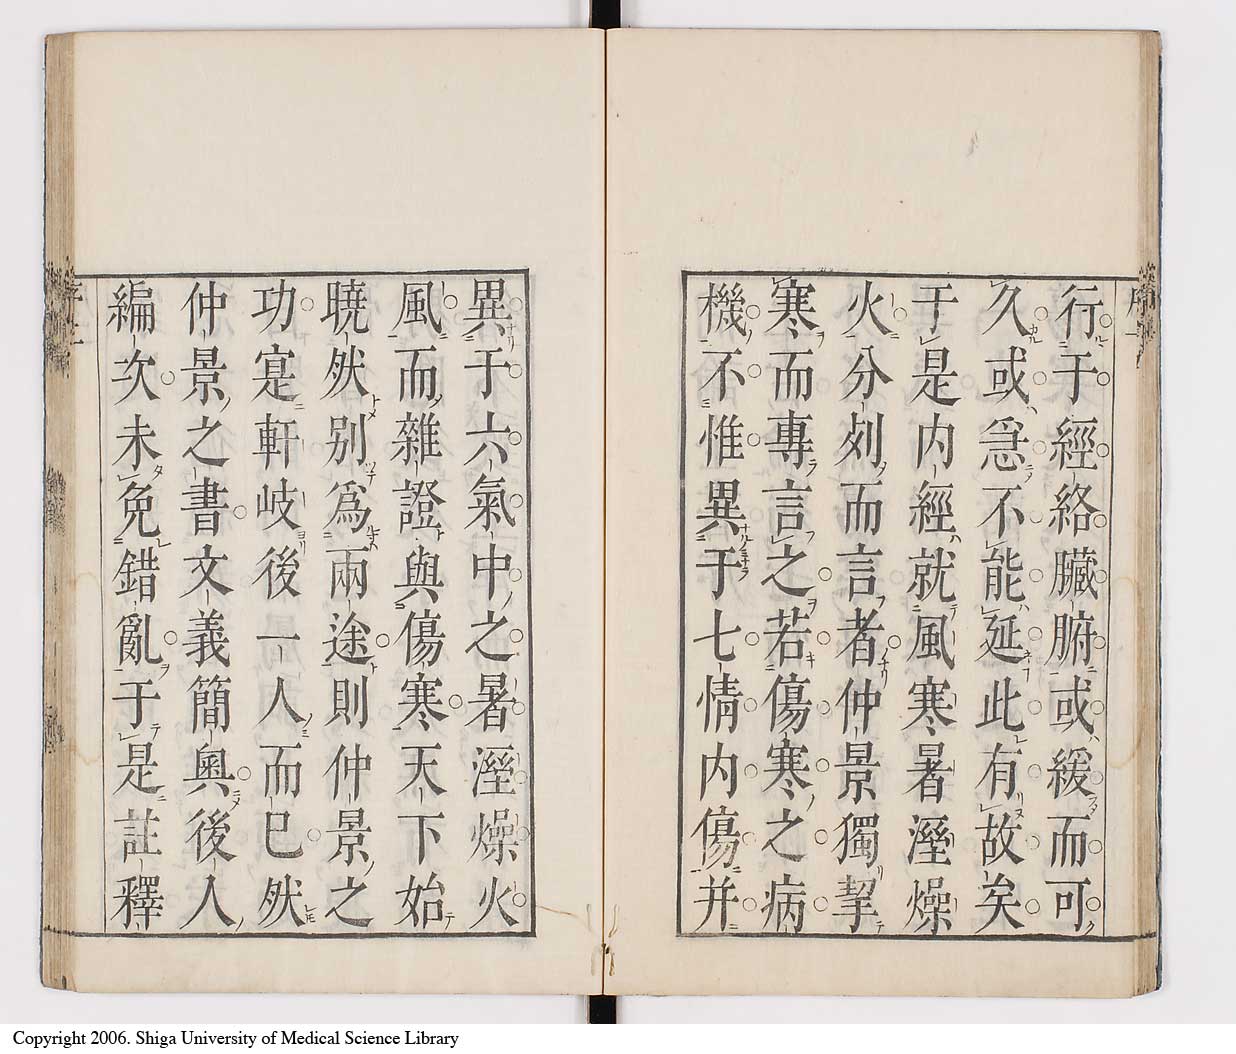 行于經絡臟腑或緩而可
久或急不能延此有故矣
于是内經就風寒暑溼燥
火分刻而言者仲景獨挈
寒而專言之若傷寒之病
機不惟異于七情内傷并
異于六氣中之暑溼燥火
風而雜證與傷寒天下始
曉然別爲兩途則仲景之
功寔軒岐後一人而已然
仲景之書文義簡奧後人
編次未免錯亂于是註釋
Copyright 2006. Shiga University of Medical Science Library